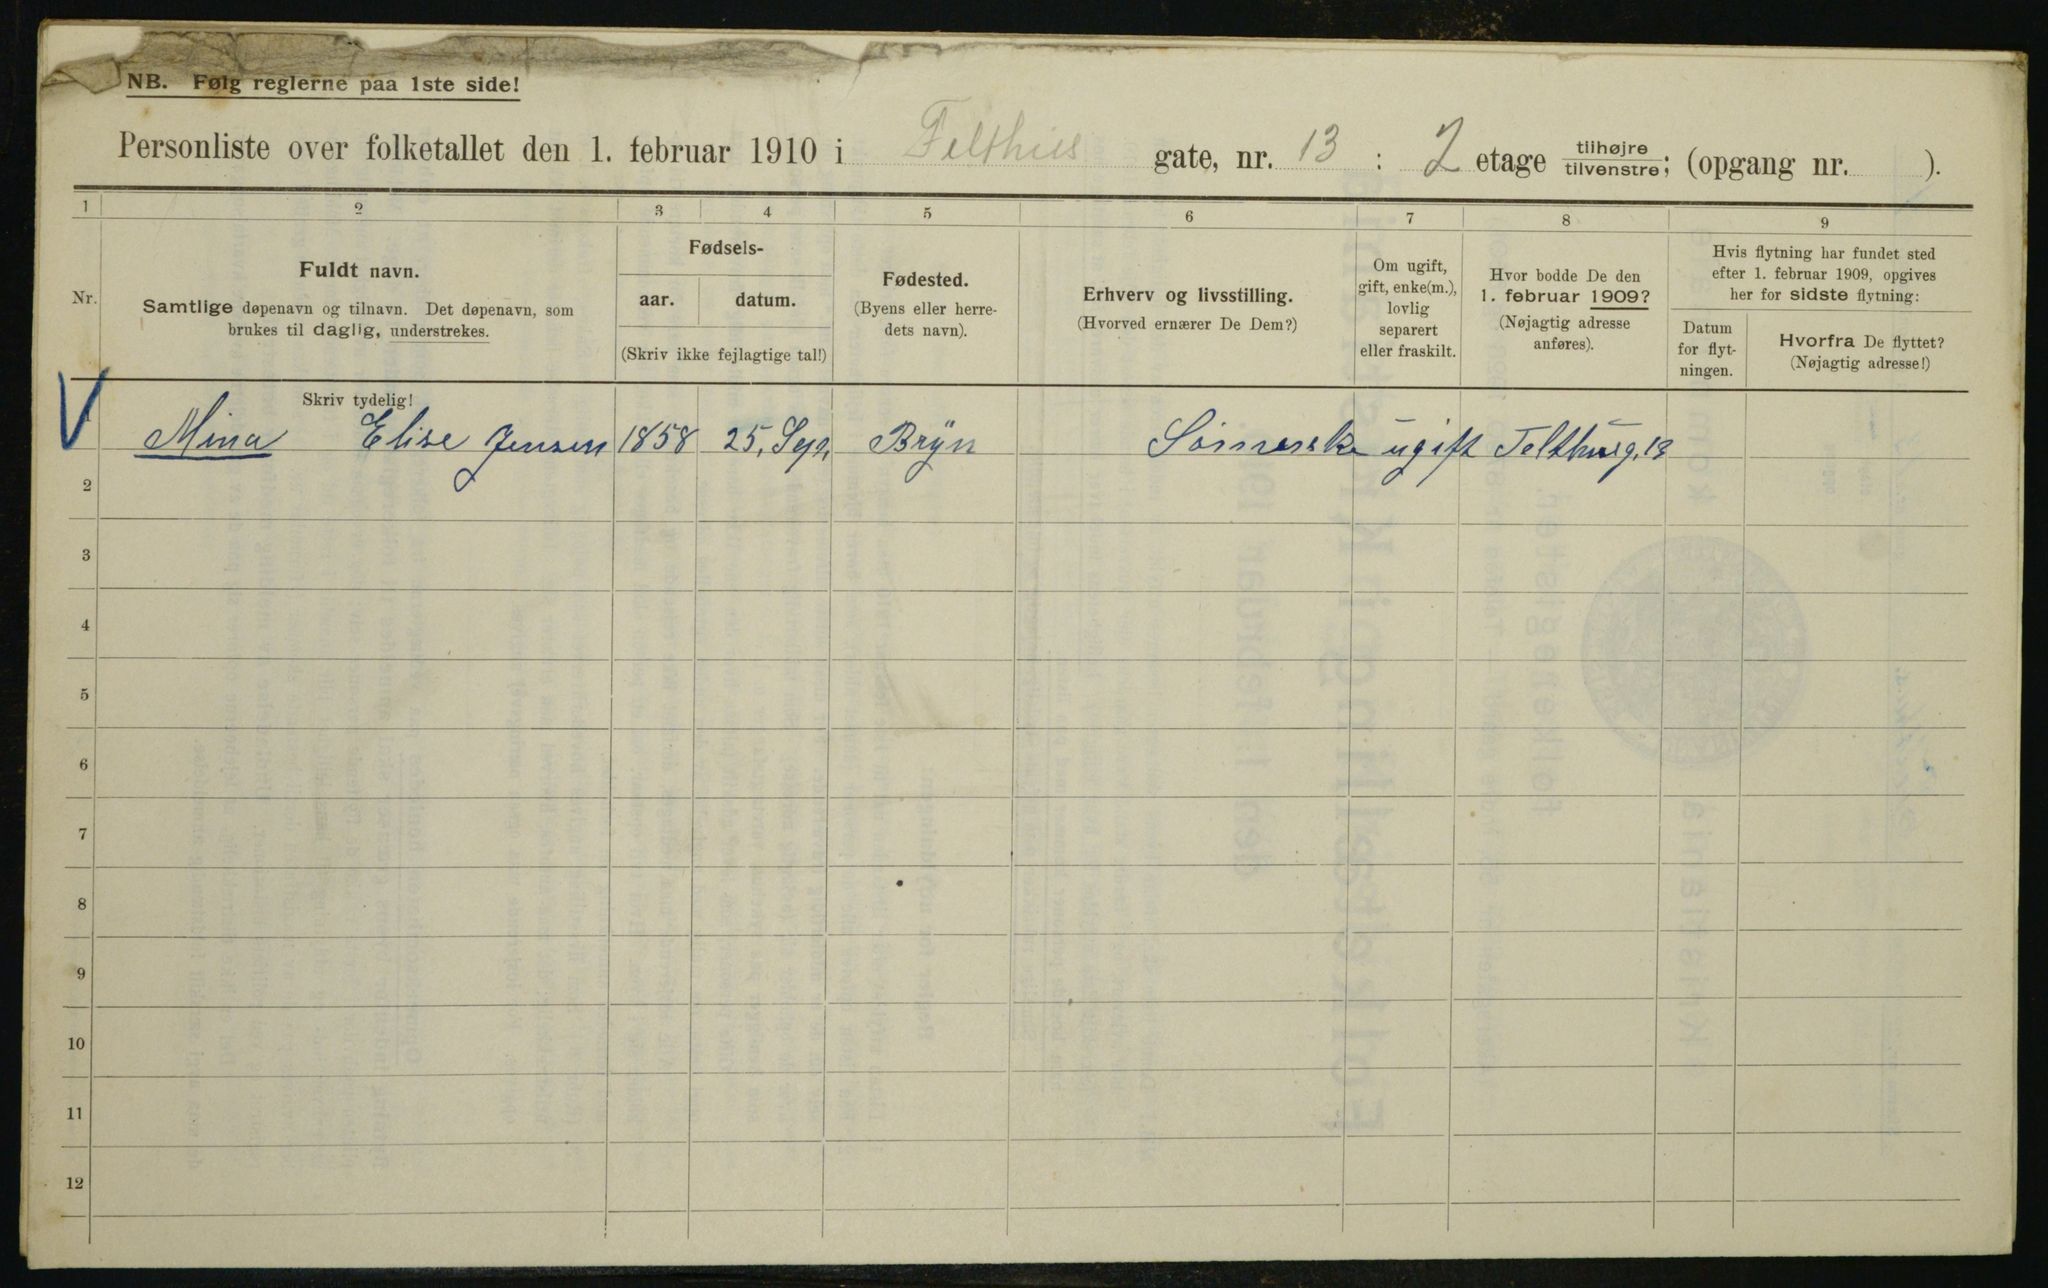 NB. Følg reglerne paa 1ste side!
Personliste over folketallet den 1. februar 1910 i Felthus gate, nr. 13 : 2 etage tilhøjre/tilvenstre; (opgang nr. ).
1 2 3 4 5 6 7 8 9
Nr.
Fuldt navn.
Samtlige døpenavn og tilnavn. Det døpenavn, som
brukes til daglig, understrekes.
Skriv tydelig!
Fødsels-
aar. datum.
(Skriv ikke fejlagtige tal!)
Fødested.
(Byens eller herre-
dets navn).
Erhverv og livsstilling.
(Hvorved ernærer De Dem?)
Om ugift,
gift, enke(m.),
lovlig
separert
eller fraskilt.
Hvor bodde De den
1. februar 1909?
(Nøjagtig adresse
anføres).
Hvis flytning har fundet sted
efter 1. februar 1909, opgives
her for sidste flytning:
Datum
for flyt-
ningen.
Hvorfra De flyttet?
(Nøjagtig adresse!)
Mina Elise Jensen 1858 25, Sep, Bryn ugift Telthusg, 13
2
3
4
5
6
7
8
9
10
11
12